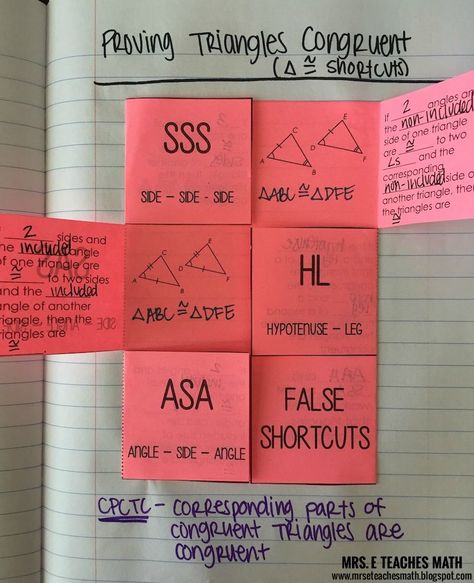 Proving Triangles Congruent
(△ ≅ shortcuts)
SSS
SIDE - SIDE - SIDE
A B C D E F
△ABC ≅ △DFE
If 2 angles an
the non-included
side of one triangle
are ≅ to two
∠s and the
corresponding
non-included side of
another triangle, then
the triangles are
≅
f 2 sides and
he included angle
of one triangle are
≅ to two sides
and the included
angle of another
triangle, then the
triangles are
≅
A B C D E F
△ABC ≅ △DFE
HL
HYPOTENUSE - LEG
ASA
ANGLE - SIDE - ANGLE
FALSE
SHORTCUTS
CPCTC - Corresponding parts of
congruent triangles are
congruent
MRS. E TEACHES MATH
www.mrseteachesmath.blogspot.com